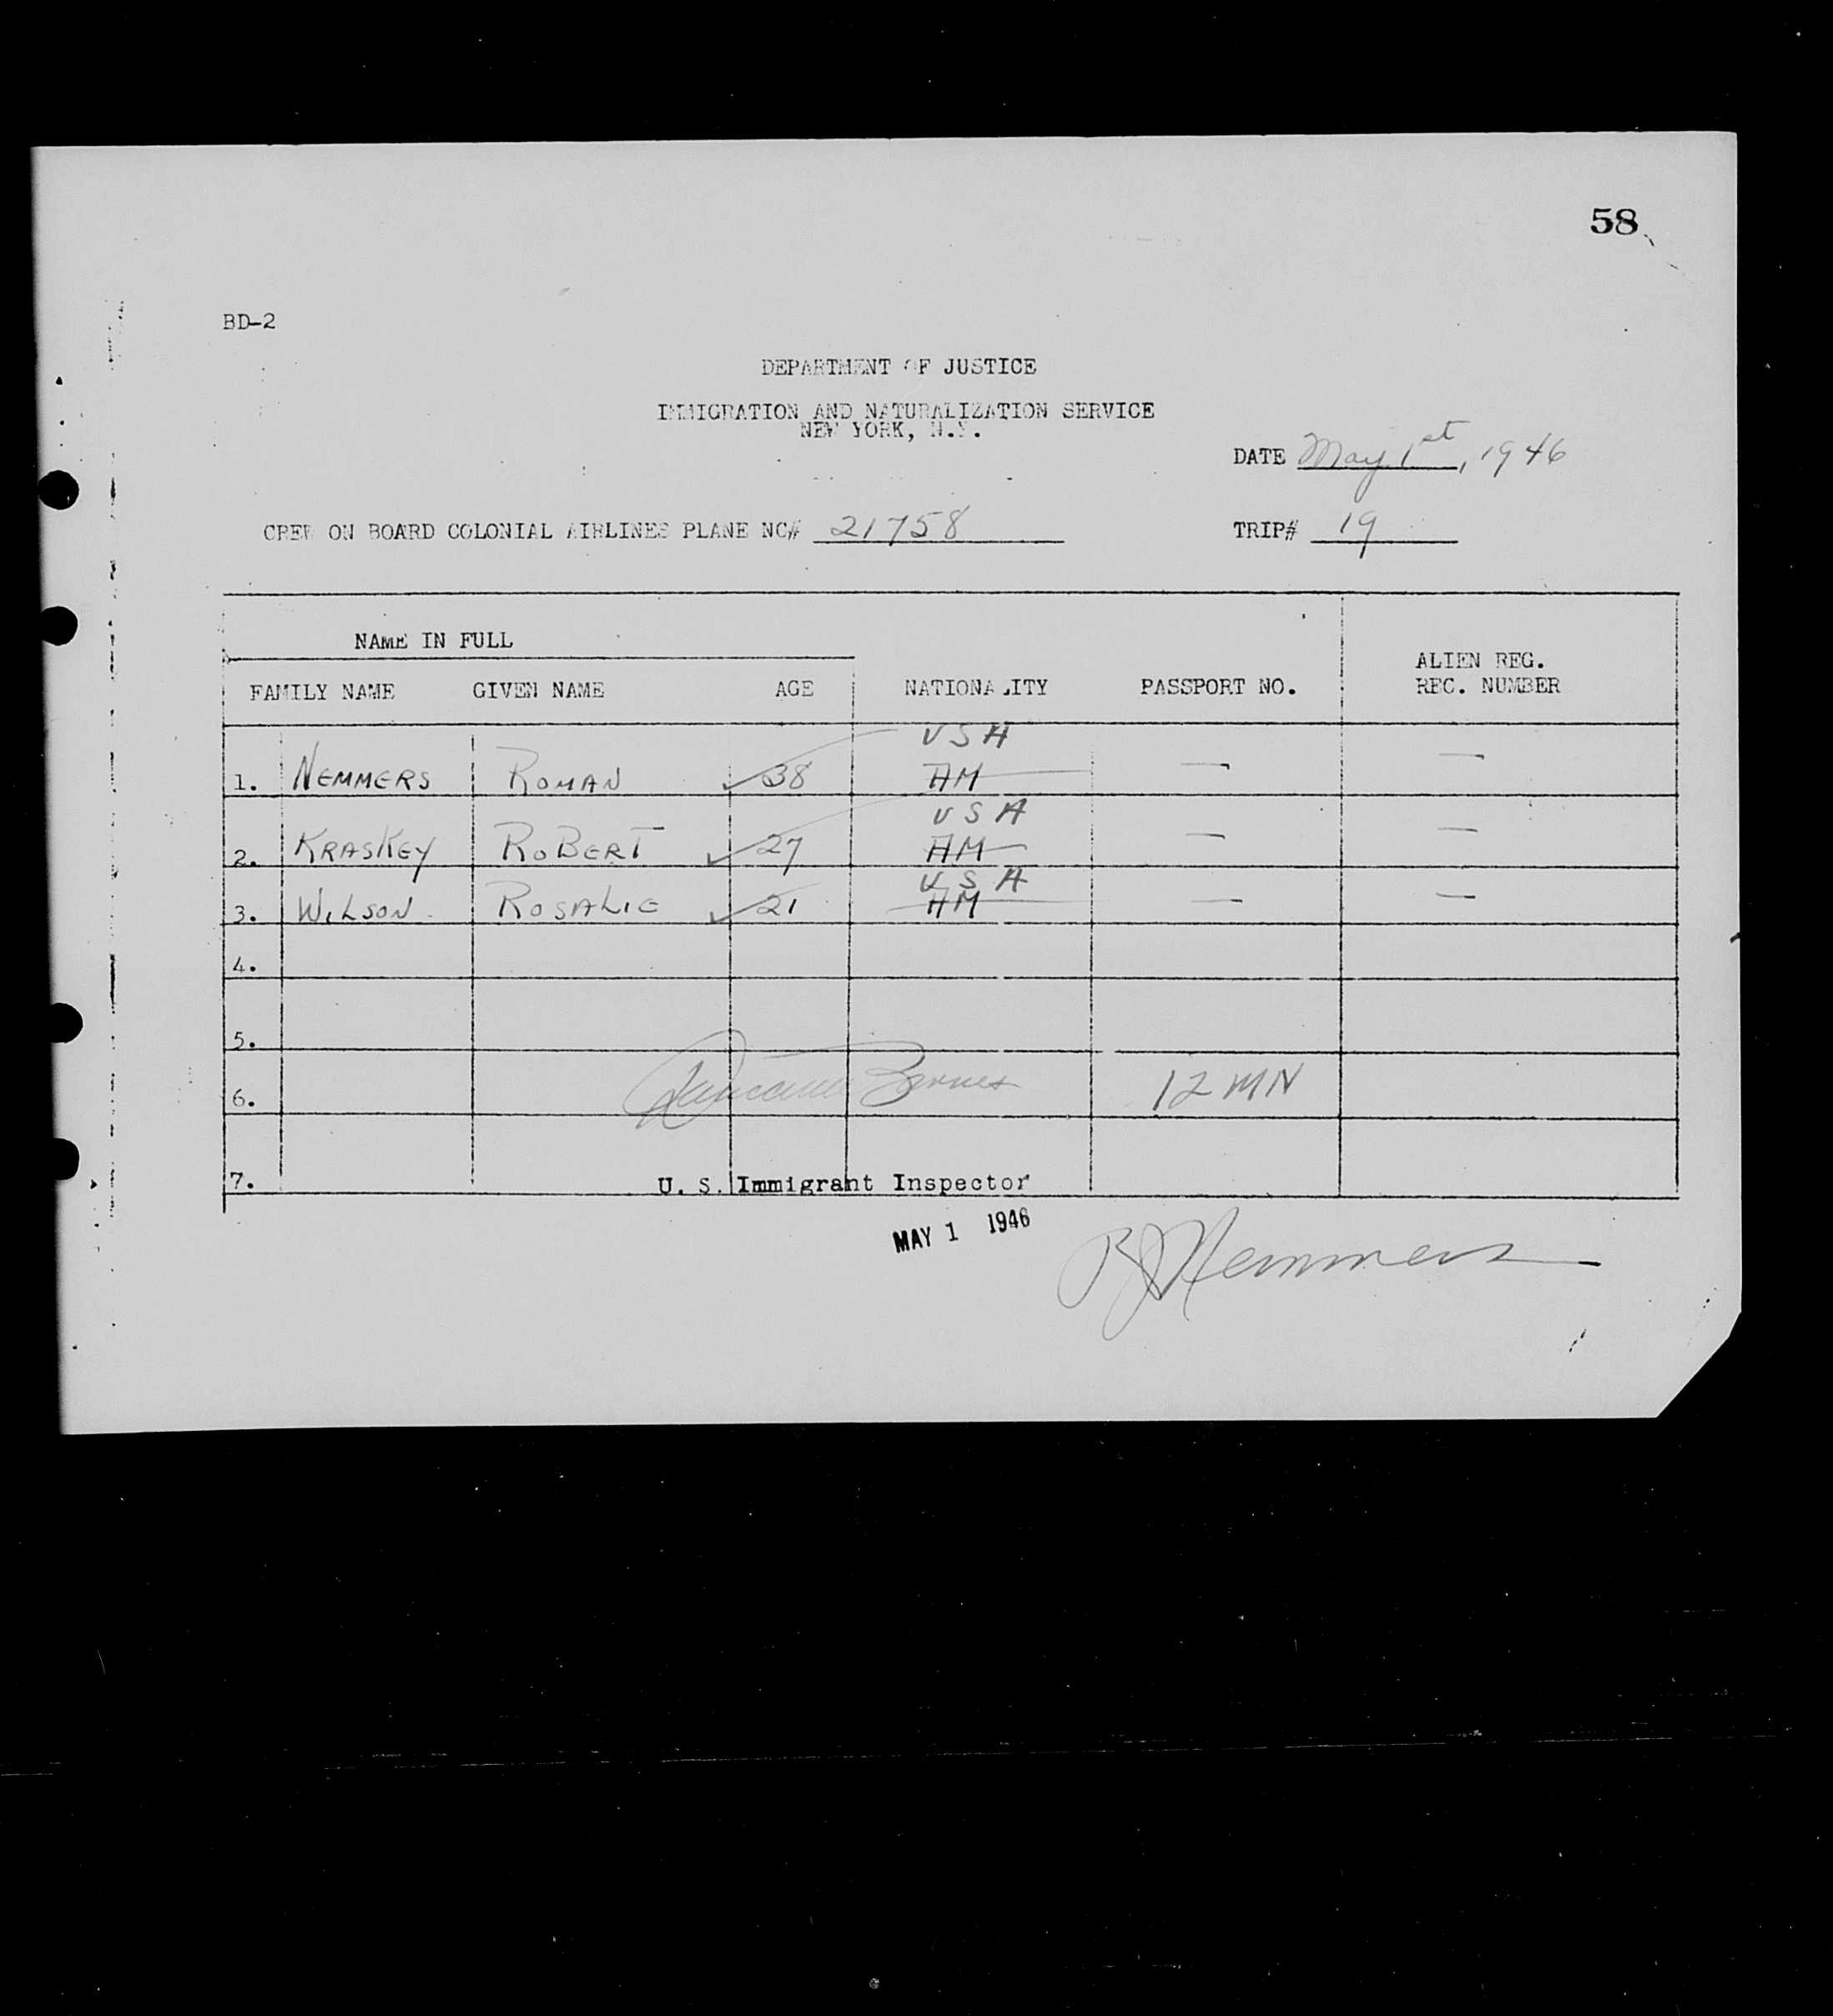 58
BD-2
DEPARTMENT OF JUSTICE
IMMIGRATION AND NATURALIZATION SERVICE
NEW YORK, N.Y.
DATE May 1st, 1946
CREW ON BOARD COLONIAL AIRLINES PLANE NC# 21758 TRIP# 19
NAME IN FULL
FAMILY NAME GIVEN NAME AGE NATIONALITY PASSPORT NO. ALIEN REG. REC. NUMBER
USA
1. NEMMERS ROMAN ✓ 38 AM — —
USA
2. KRASKEY ROBERT ✓ 27 AM — —
USA
3. WILSON ROSALIE ✓ 21 AM — —
4.
5.
6. Barnes 12 MN
7. U. S. Immigrant Inspector
MAY 1 1946
RJ Nemmers